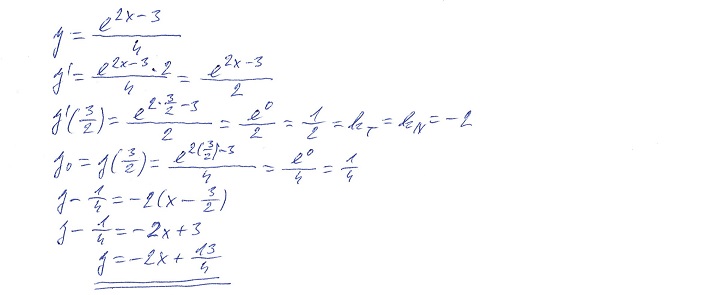 y = e^(2x-3)/4
y' = e^(2x-3)·2/4 = e^(2x-3)/2
y'(3/2) = e^(2·3/2-3)/2 = e^0/2 = 1/2 = k_T = k_N = -2
y_0 = y(3/2) = e^(2(3/2)-3)/4 = e^0/4 = 1/4
y - 1/4 = -2(x - 3/2)
y - 1/4 = -2x + 3
y = -2x + 13/4